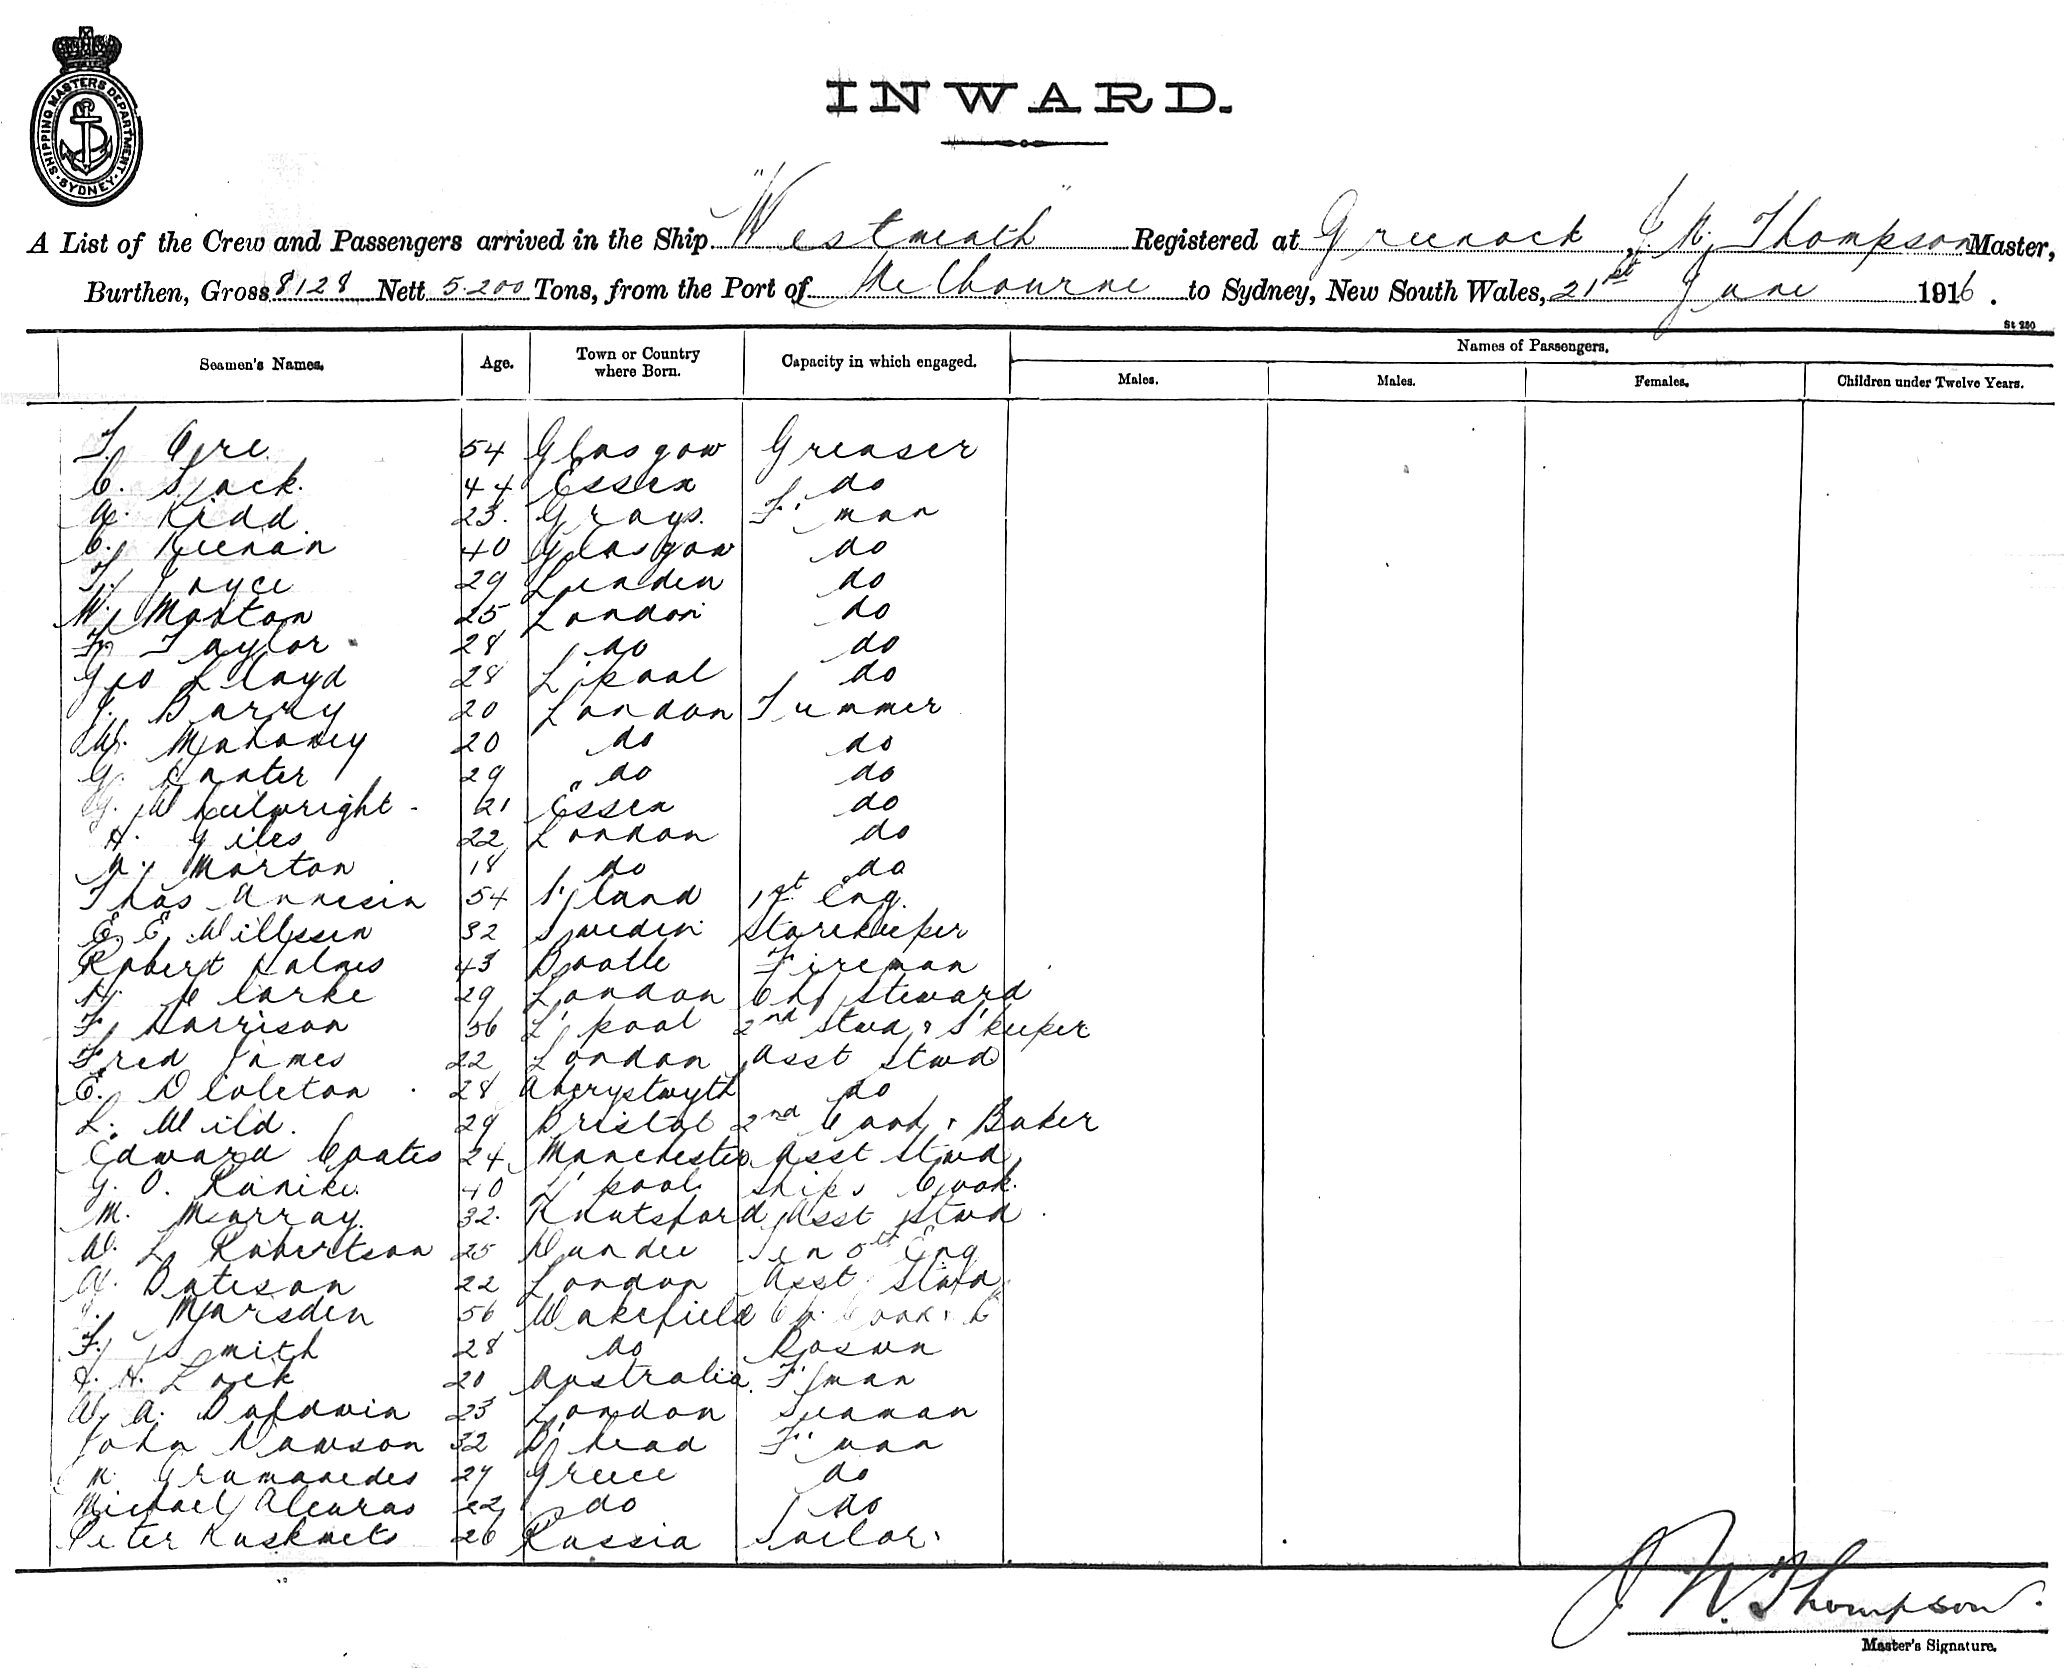 SHIPPING MASTERS DEPARTMENT
SYDNEY
INWARD.
A List of the Crew and Passengers arrived in the Ship "Westmeath" Registered at Greenock J. W. Thompson Master,
Burthen, Gross 8128 Nett 5.200 Tons, from the Port of Melbourne to Sydney, New South Wales, 21st June 1916.
St 250
Seamen's Names. Age. Town or Country where Born. Capacity in which engaged. Names of Passengers.
Males. Males. Females. Children under Twelve Years.
T. 54 Glasgow Greaser
C. 44 Essex do
A. Kidd 23. Grays. F'man
C. Keenan 40 Glasgow do
T. Joyce 29 London do
W. Morton 25 London do
Taylor 28 do do
Geo Lloyd 28 L'pool do
J. Barry 20 London
W. Mahoney 20 do do
G. 29 do do
G. 21 Essex do
H. Giles 22 London do
Morton 18 do do
Thos 54 S'land 1st Eng.
E. E. 32 Sweden Storekeeper
Robert 43 Bootle Fireman
H. Clarke 29 London Ch. Steward
F. Harrison 56 L'pool 2nd Stwd & S'keeper
Fred James 22 London Asst Stwd
E. 28 Aberystwyth do
L. Wild. 29 Bristol 2nd Cook & Baker
Edward Coates 24 Manchester Asst Stwd
G. O. 40 L'pool Ships Cook.
M. Murray. 32. Knutsford Asst Stwd
W. L. Robertson 25 Dundee Jun 5th Eng
A. Bateson 22 London Asst Stwd
Marsden 56 Wakefield Ch. Cook &
F. Smith 28 do Bosun
H. Lock 20 Australia. F'man
W. A. Baldwin 23 London Seaman
John Dawson 32 B'head F'man
Greece do
Michael 22 do do
Peter 26 Russia Sailor.
J. W. Thompson.
Master's Signature.